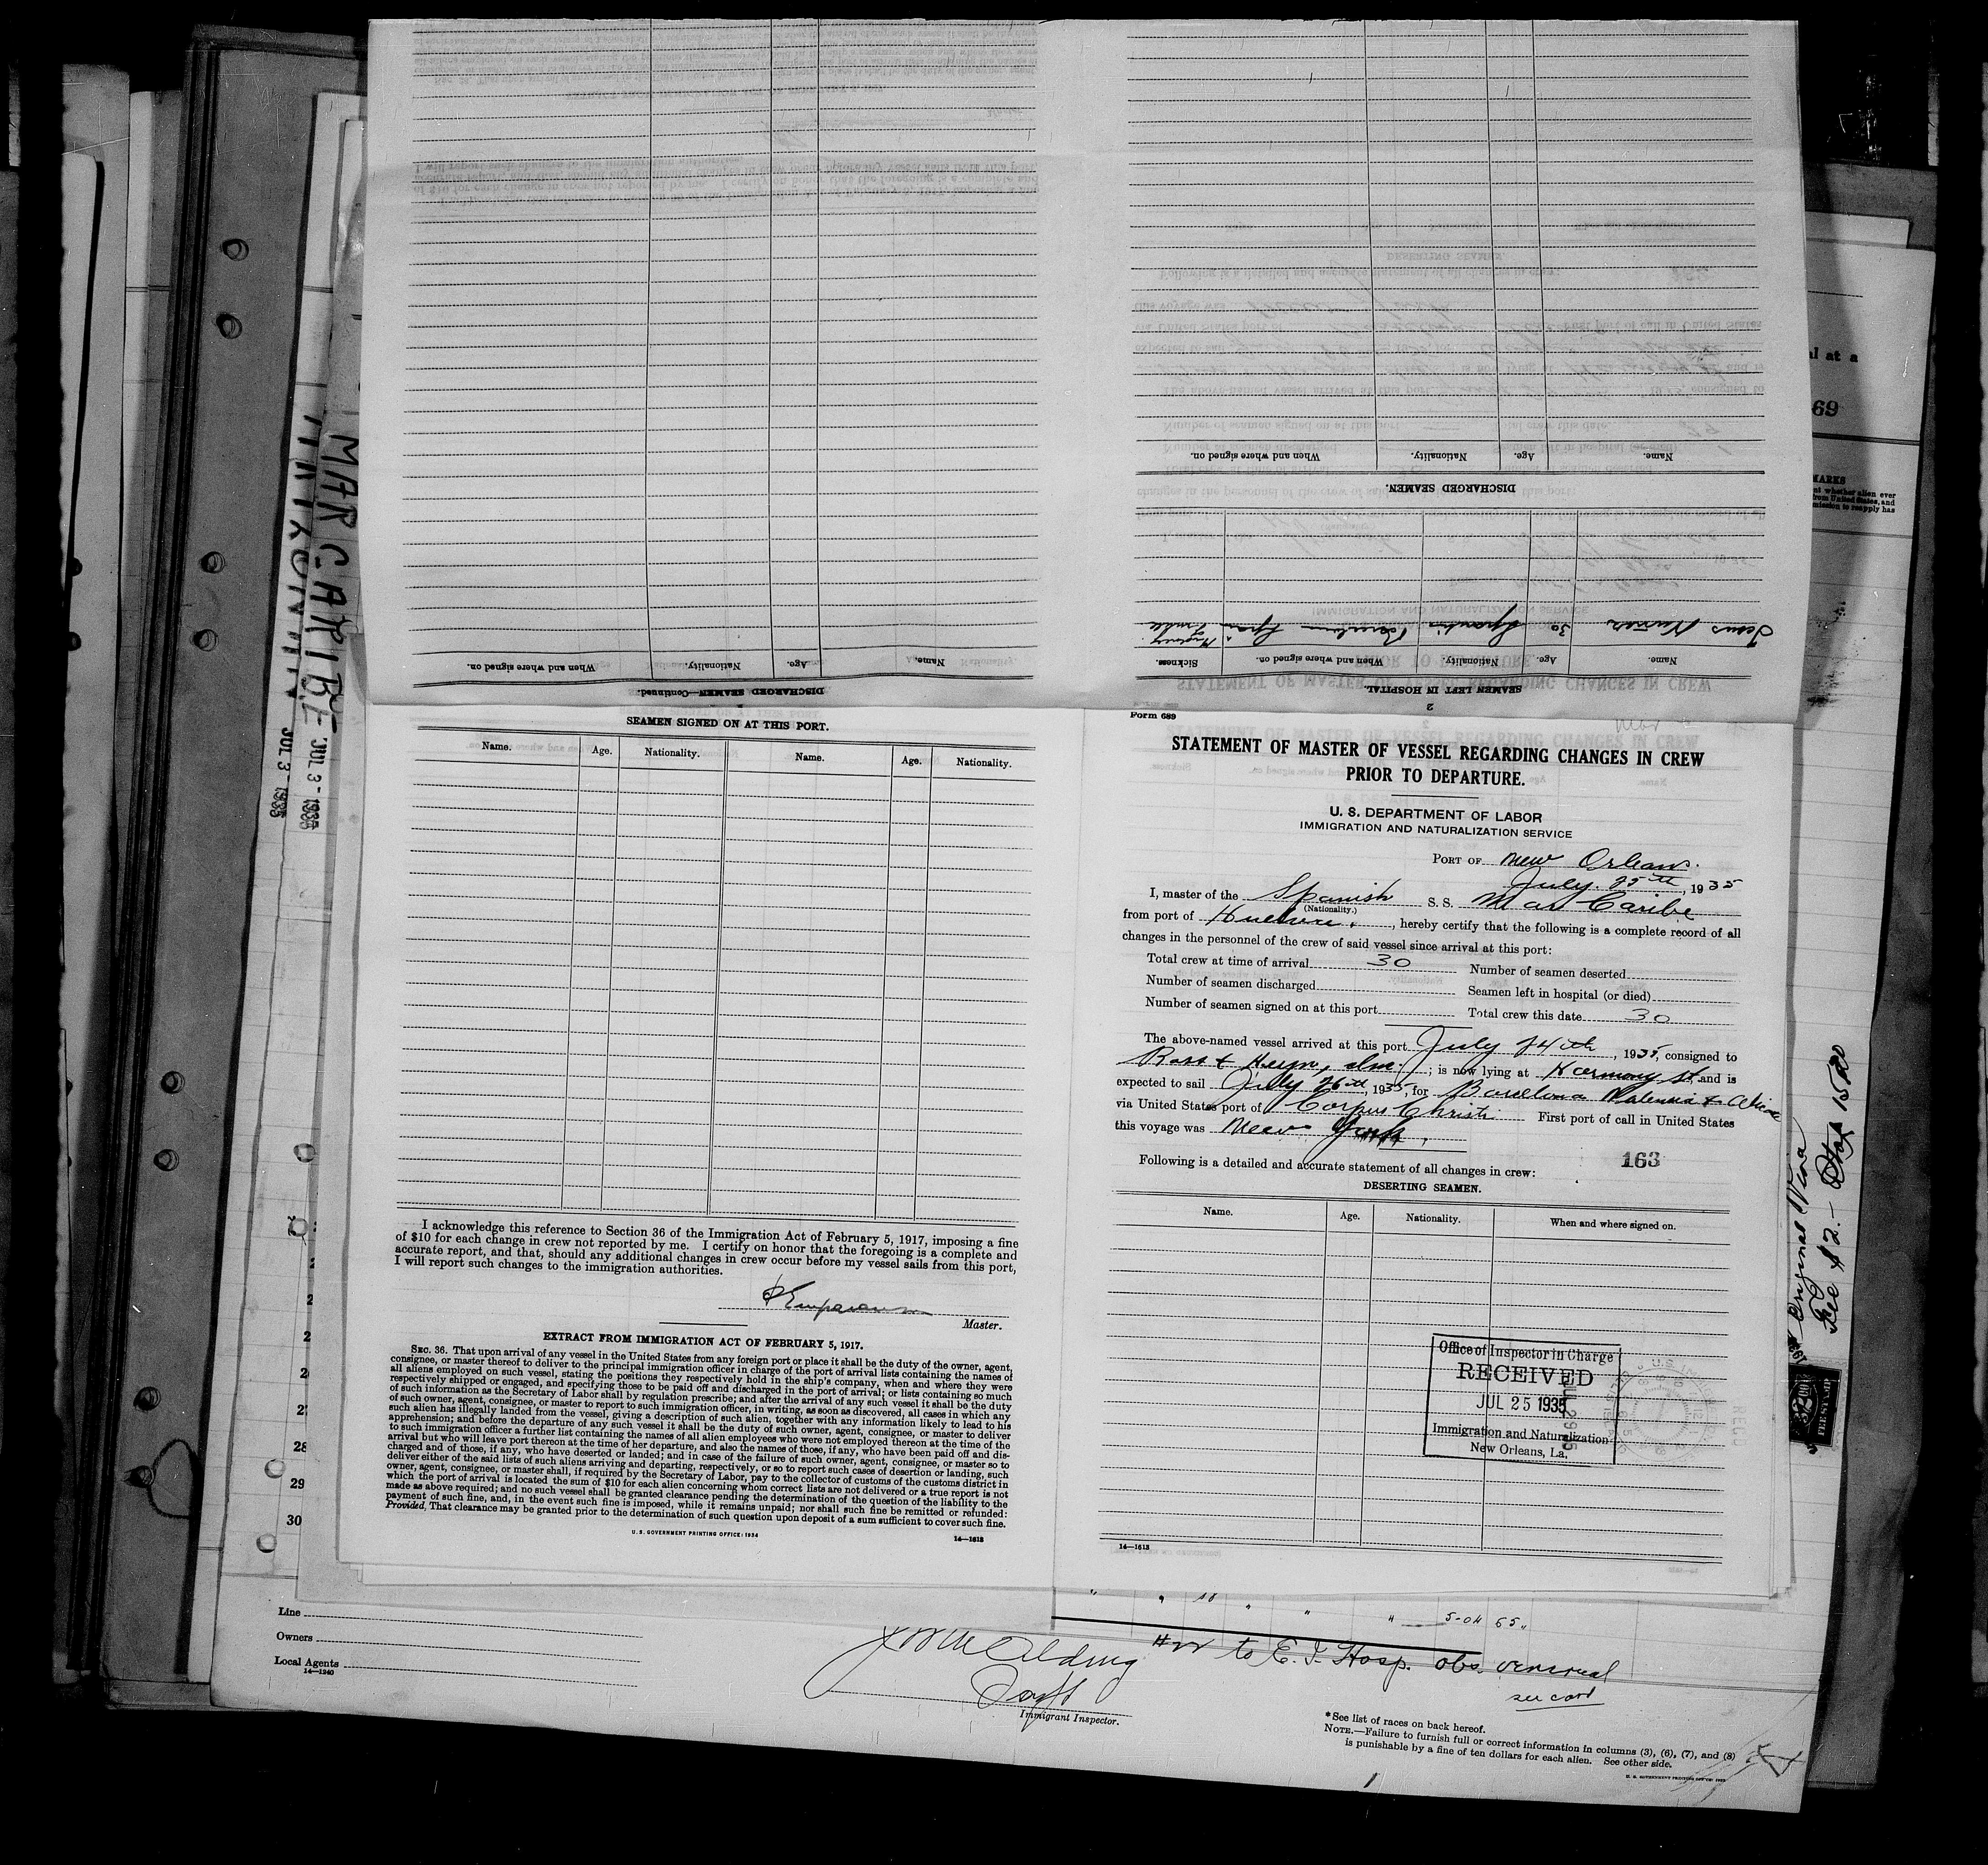 Name.
Age.
Nationality.
When and where signed on.
DISCHARGED SEAMEN—Continued.
Name.
Age.
Nationality.
When and where signed on.
DISCHARGED SEAMEN.
Jesus
30
Barcelona Spain
Name.
Age.
Nationality.
When and where signed on.
Sickness.
SEAMEN LEFT IN HOSPITAL.
2
MAR CARIBE
JUL 3 - 1935
JUL 3 - 1935
al at a
69
MARKS
SEAMEN SIGNED ON AT THIS PORT.
Name. Age. Nationality. Name. Age. Nationality.
I acknowledge this reference to Section 36 of the Immigration Act of February 5, 1917, imposing a fine
of $10 for each change in crew not reported by me. I certify on honor that the foregoing is a complete and
accurate report, and that, should any additional changes in crew occur before my vessel sails from this port,
I will report such changes to the immigration authorities.
Master.
EXTRACT FROM IMMIGRATION ACT OF FEBRUARY 5, 1917.
SEC. 36. That upon arrival of any vessel in the United States from any foreign port or place it shall be the duty of the owner, agent,
consignee, or master thereof to deliver to the principal immigration officer in charge of the port of arrival lists containing the names of
all aliens employed on such vessel, stating the positions they respectively hold in the ship's company, when and where they were
respectively shipped or engaged, and specifying those to be paid off and discharged in the port of arrival; or lists containing so much
of such information as the Secretary of Labor shall by regulation prescribe; and after the arrival of any such vessel it shall be the duty
of such owner, agent, consignee, or master to report to such immigration officer, in writing, as soon as discovered, all cases in which any
such alien has illegally landed from the vessel, giving a description of such alien, together with any information likely to lead to his
apprehension; and before the departure of any such vessel it shall be the duty of such owner, agent, consignee, or master to deliver
to such immigration officer a further list containing the names of all alien employees who were not employed thereon at the time of the
arrival but who will leave port thereon at the time of her departure, and also the names of those, if any, who have been paid off and dis-
charged and of those, if any, who have deserted or landed; and in case of the failure of such owner, agent, consignee, or master so to
deliver either of the said lists of such aliens arriving and departing, respectively, or so to report such cases of desertion or landing, such
owner, agent, consignee, or master shall, if required by the Secretary of Labor, pay to the collector of customs of the customs district in
which the port of arrival is located the sum of $10 for each alien concerning whom correct lists are not delivered or a true report is not
made as above required; and no such vessel shall be granted clearance pending the determination of the question of the liability to the
payment of such fine, and, in the event such fine is imposed, while it remains unpaid; nor shall such fine be remitted or refunded:
Provided, That clearance may be granted prior to the determination of such question upon deposit of a sum sufficient to cover such fine.
U. S. GOVERNMENT PRINTING OFFICE: 1934 14—1618
Form 689
STATEMENT OF MASTER OF VESSEL REGARDING CHANGES IN CREW
PRIOR TO DEPARTURE.
U. S. DEPARTMENT OF LABOR
IMMIGRATION AND NATURALIZATION SERVICE
PORT OF New Orleans.
July. 25th, 1935
I, master of the Spanish S. S. Mar Caribe
(Nationality.)
from port of Huelva, hereby certify that the following is a complete record of all
changes in the personnel of the crew of said vessel since arrival at this port:
Total crew at time of arrival 30 Number of seamen deserted
Number of seamen discharged Seamen left in hospital (or died)
Number of seamen signed on at this port Total crew this date 30
The above-named vessel arrived at this port July 24th, 1935, consigned to
Ross & Heyn, ; is now lying at Harmony St. and is
expected to sail July 26th, 1935, for Barcelona Valencia &
via United States port of Corpus Christi First port of call in United States
this voyage was New York.
163
Following is a detailed and accurate statement of all changes in crew:
DESERTING SEAMEN.
Name. Age. Nationality. When and where signed on.
Office of Inspector in Charge
RECEIVED
JUL 25 1935
Immigration and Naturalization
New Orleans, La.
14—1618
Original Visa
Fee $2.-
28
29
30
Line
Owners
Local Agents
14—1240
Immigrant Inspector.
to E. I. Hosp. obs. venereal
see card
*See list of races on back hereof.
NOTE.—Failure to furnish full or correct information in columns (3), (6), (7), and (8)
is punishable by a fine of ten dollars for each alien. See other side.